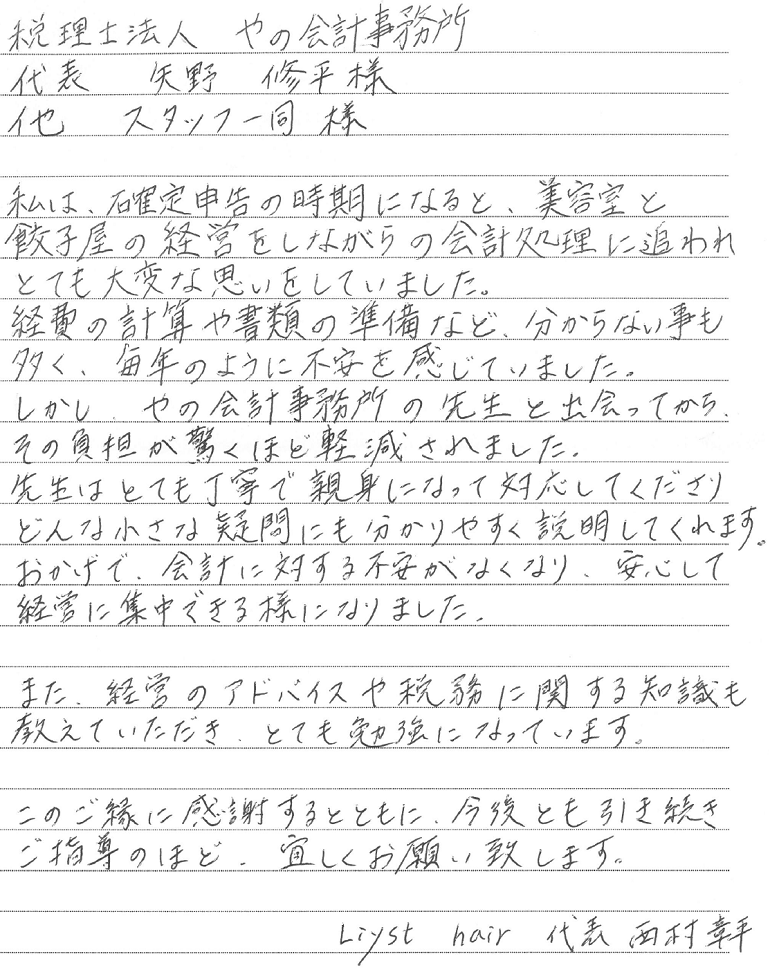 税理士法人 やの会計事務所
代表 矢野 修平様
他 スタッフ一同 様
私は、確定申告の時期になると、美容室と
餃子屋の経営をしながらの会計処理に追われ
とても大変な思いをしていました。
経費の計算や書類の準備など、分からない事も
多く、毎年のように不安を感じていました。
しかし、やの会計事務所の先生と出会ってから、
その負担が驚くほど軽減されました。
先生はとても丁寧で親身になって対応してくださり
どんな小さな疑問にも分かりやすく説明してくれます。
おかげで、会計に対する不安がなくなり、安心して
経営に集中できる様になりました。
また、経営のアドバイスや税務に関する知識も
教えていただき、とても勉強になっています。
このご縁に感謝するとともに、今後とも引き続き
ご指導のほど、宜しくお願い致します。
Liyst hair 代表 西村幸平